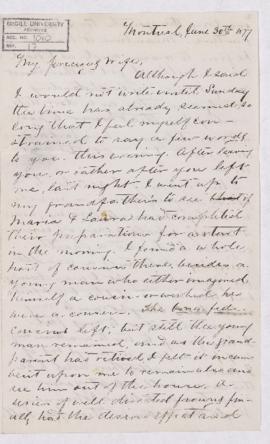 McGILL UNIVERSITY
ARCHIVES
ACC. NO. 1010
REF. 17
Montreal, June 30th 1877
My Precious Wife,
Although I said
I would not write until Sunday
the time has already seemed so
long that I feel myself con-
strained to say a few words
to you this evening. After leaving
you, or rather after you left
me last night I went up to
my grandfather's to see if
Maria & Laura had completed
their preparations for a start
in the morning. I found a whole
host of cousins there, besides a
young man who either imagined
himself a cousin or wished he
were a cousin. The
cousins left, but still the young
man remained, and as the grand-
parent had retired I felt it incum-
bent upon me to remain also and
see him out of the house. A
series of well directed frowns fin-
ally had the desired effect and